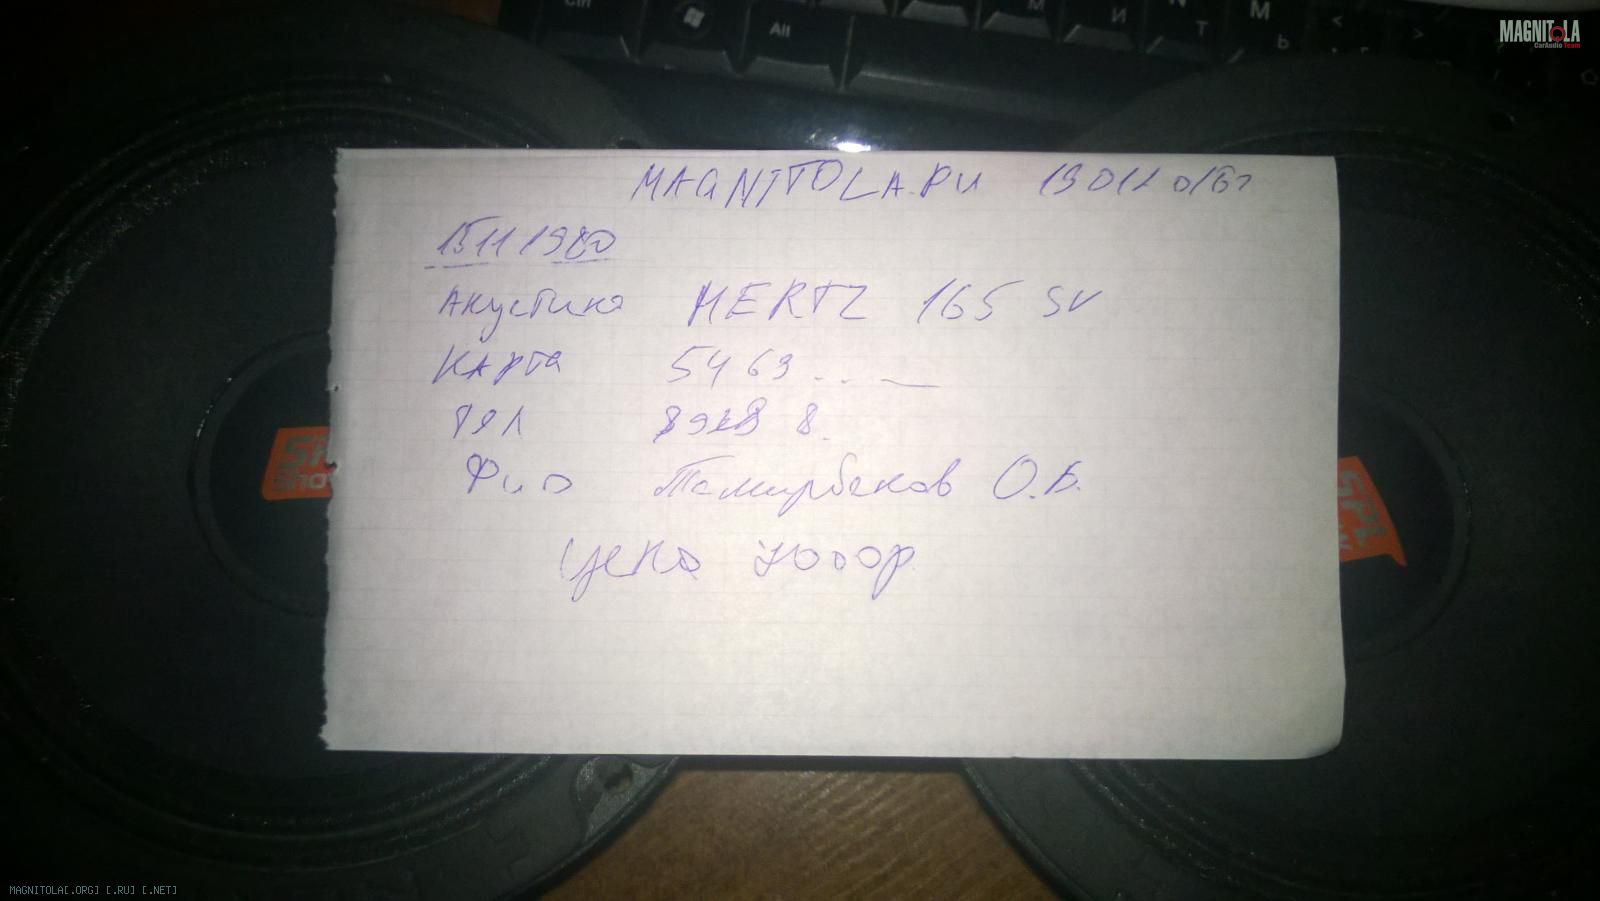 Ctrl
Alt
MAGNITOLA
CarAudio Team
MAGNITOLA.РU 19012016г
15111980
Акустика HERTZ 165 SV
Карта 5469...
тел
ФиО Темирбеков О.Б.
Цена
SPL
MAGNITOLA[.ORG] [.RU] [.NET]